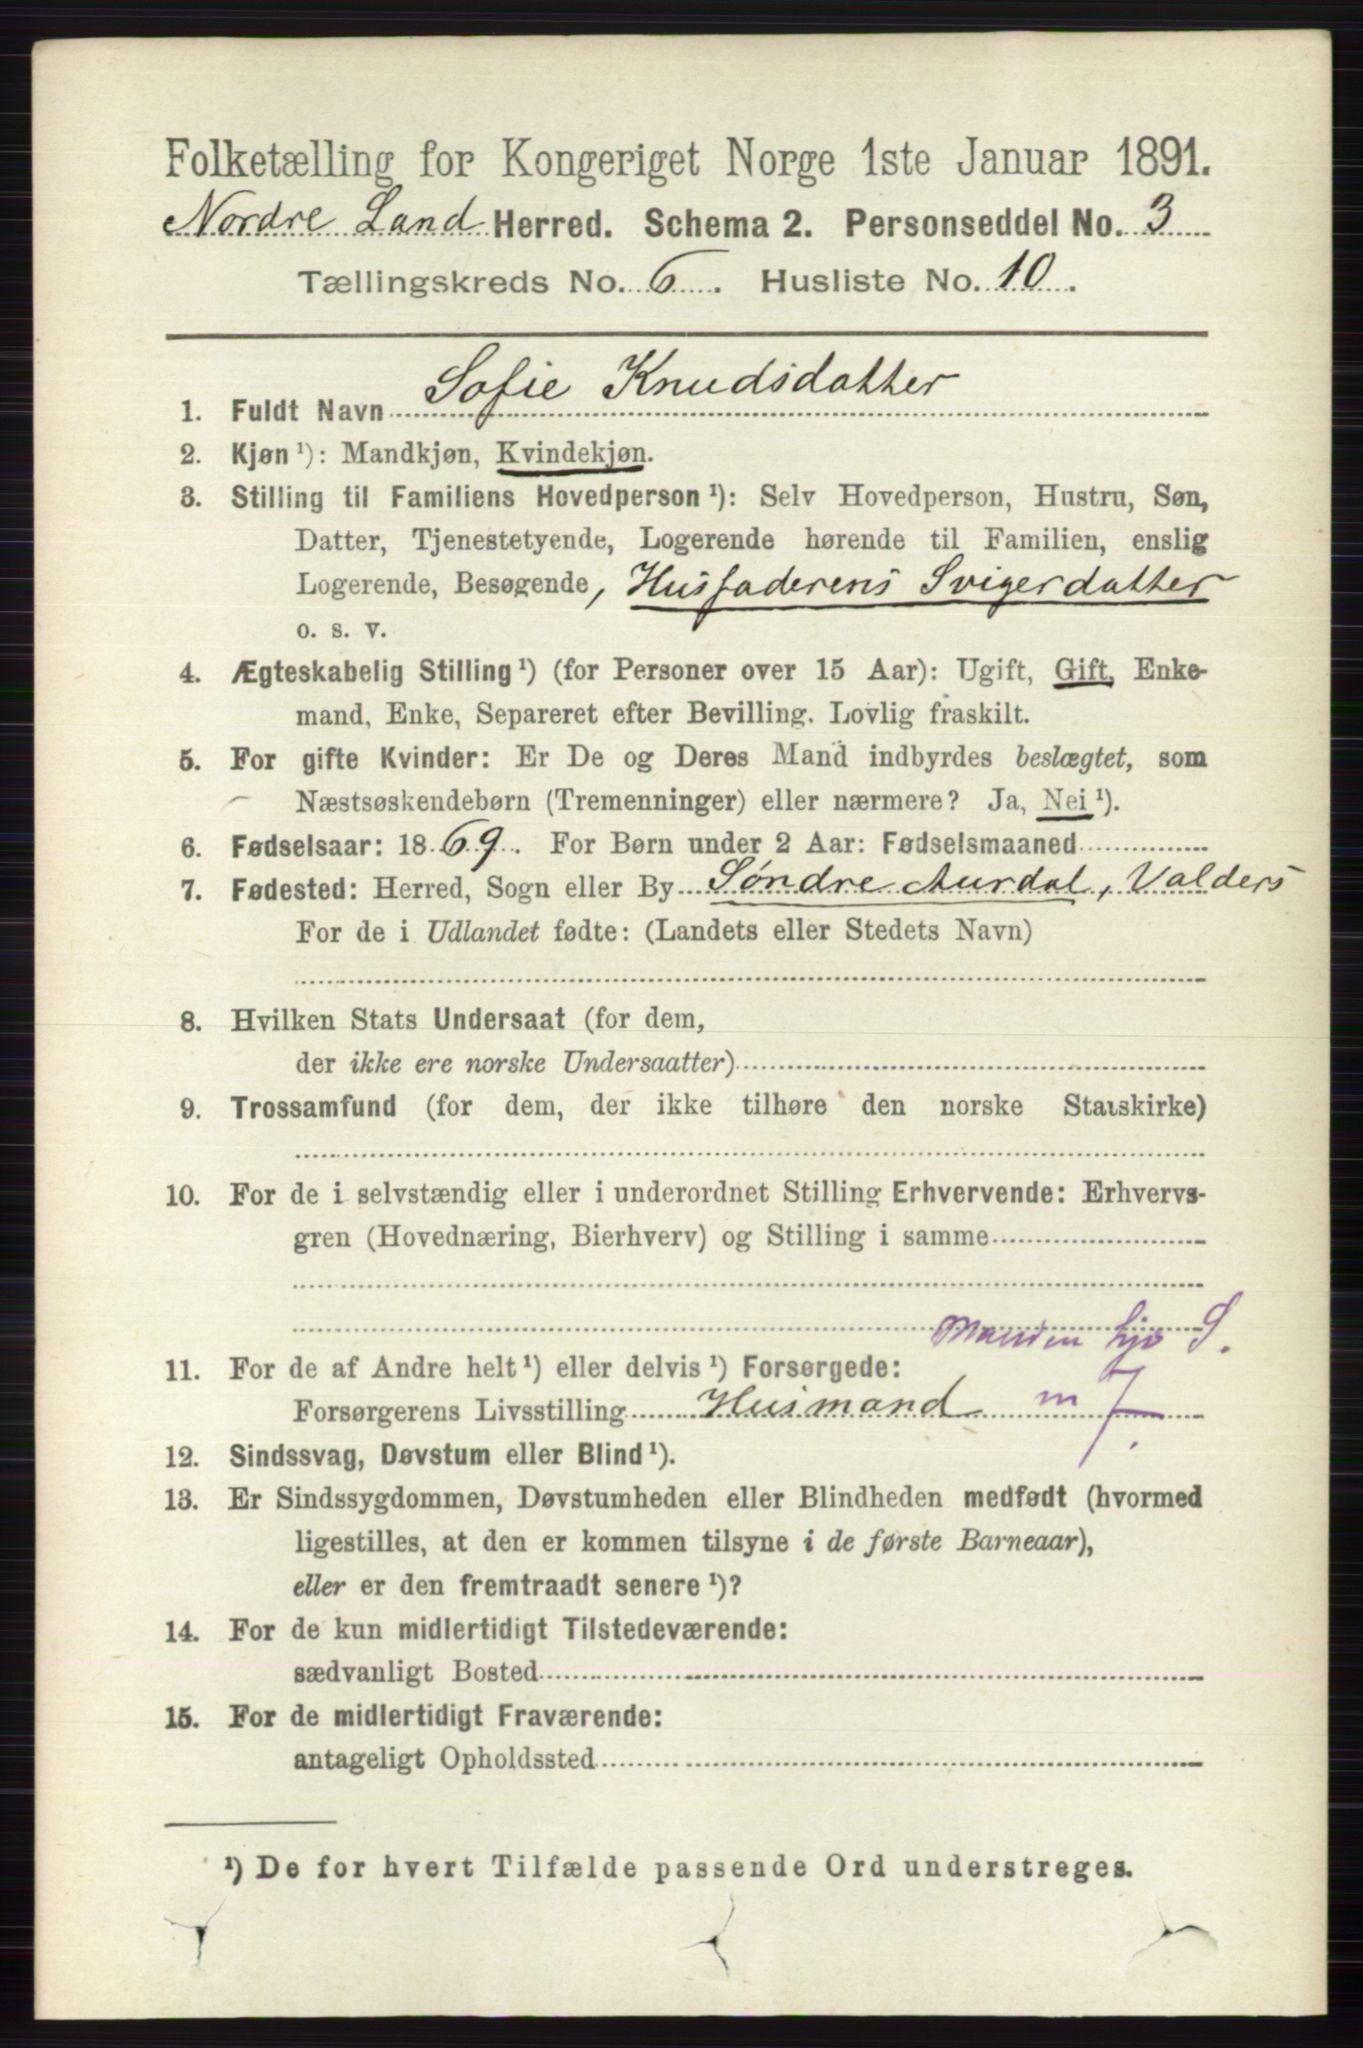 Folketælling for Kongeriget Norge 1ste Januar 1891.
Nordre Land Herred. Schema 2. Personseddel No. 3
Tællingskreds No. 6. Husliste No. 10.
Sofie Knudsdatter
1. Fuldt Navn
2. Kjøn ¹): Mandkjøn, Kvindekjøn.
3. Stilling til Familiens Hovedperson ¹): Selv Hovedperson, Hustru, Søn,
Datter, Tjenestetyende, Logerende hørende til Familien, enslig
Logerende, Besøgende, Husfaderens Svigerdatter
o. s. v.
4. Ægteskabelig Stilling ¹) (for Personer over 15 Aar): Ugift, Gift, Enke-
mand, Enke, Separeret efter Bevilling. Lovlig fraskilt.
5. For gifte Kvinder: Er De og Deres Mand indbyrdes beslægtet, som
Næstsøskendebørn (Tremenninger) eller nærmere? Ja, Nei ¹).
6. Fødselsaar: 1869. For Børn under 2 Aar: Fødselsmaaned
7. Fødested: Herred, Sogn eller By Søndre Aurdal, Valders
For de i Udlandet fødte: (Landets eller Stedets Navn)
8. Hvilken Stats Undersaat (for dem,
der ikke ere norske Undersaatter)
9. Trossamfund (for dem, der ikke tilhøre den norske Statskirke)
10. For de i selvstændig eller i underordnet Stilling Erhvervende: Erhvervs-
gren (Hovednæring, Bierhverv) og Stilling i samme
Manden S.
11. For de af Andre helt ¹) eller delvis ¹) Forsørgede:
Forsørgerens Livsstilling Husmand m 7.
12. Sindssvag, Døvstum eller Blind ¹).
13. Er Sindssygdommen, Døvstumheden eller Blindheden medfødt (hvormed
ligestilles, at den er kommen tilsyne i de første Barneaar),
eller er den fremtraadt senere ¹)?
14. For de kun midlertidigt Tilstedeværende:
sædvanligt Bosted
15. For de midlertidigt Fraværende:
antageligt Opholdssted
¹) De for hvert Tilfælde passende Ord understreges.